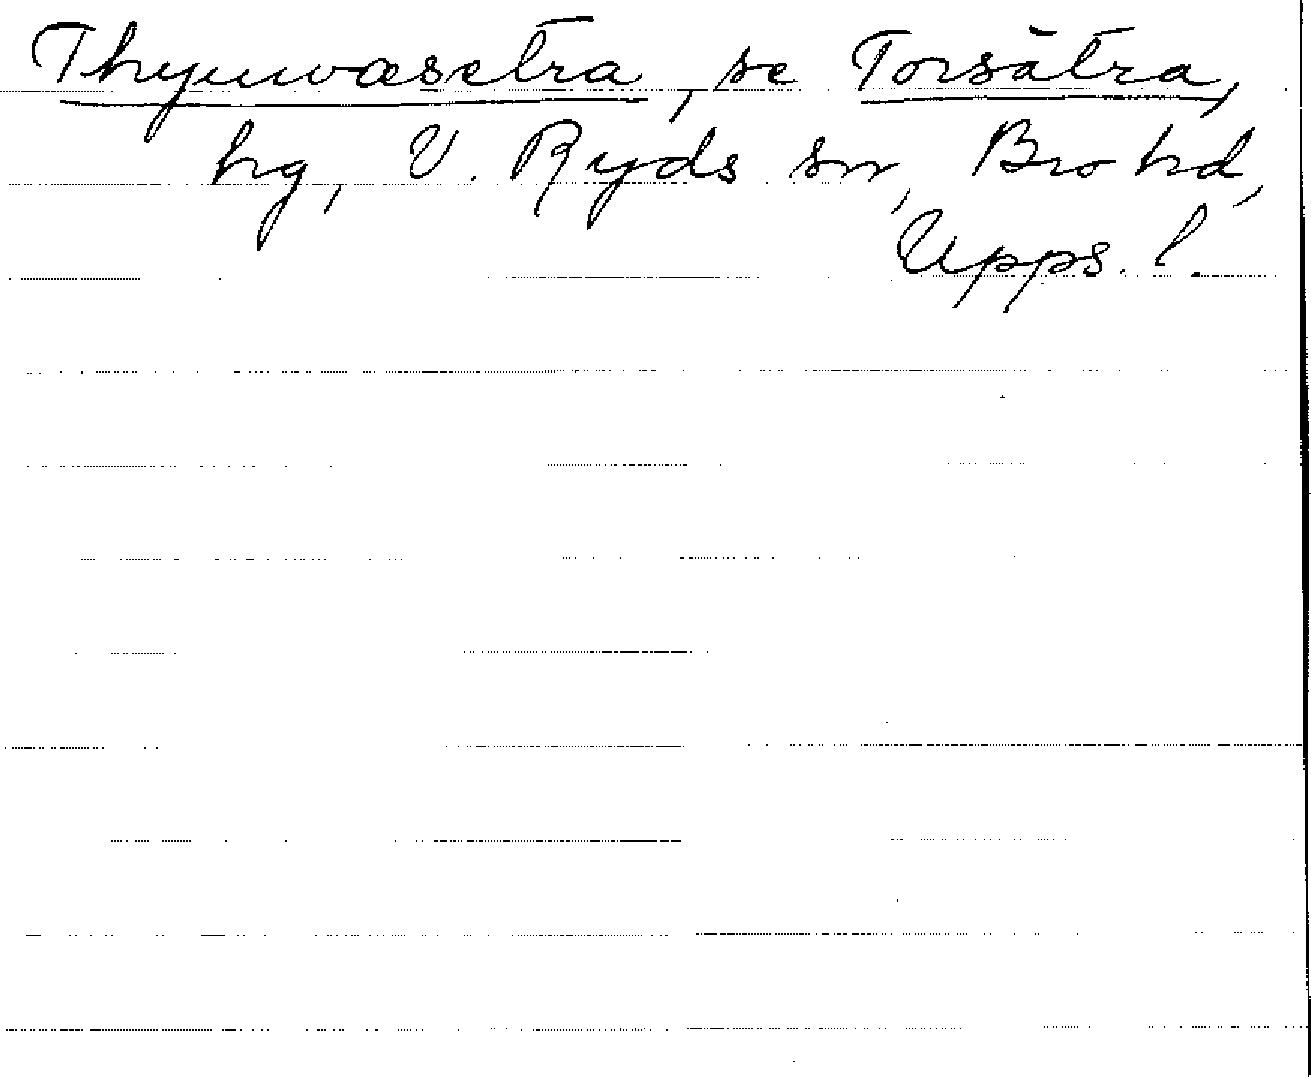 Thyuuvæsetra, se Torsätra,
hg, V. Ryds sn, Bro hd,
Upps. l.